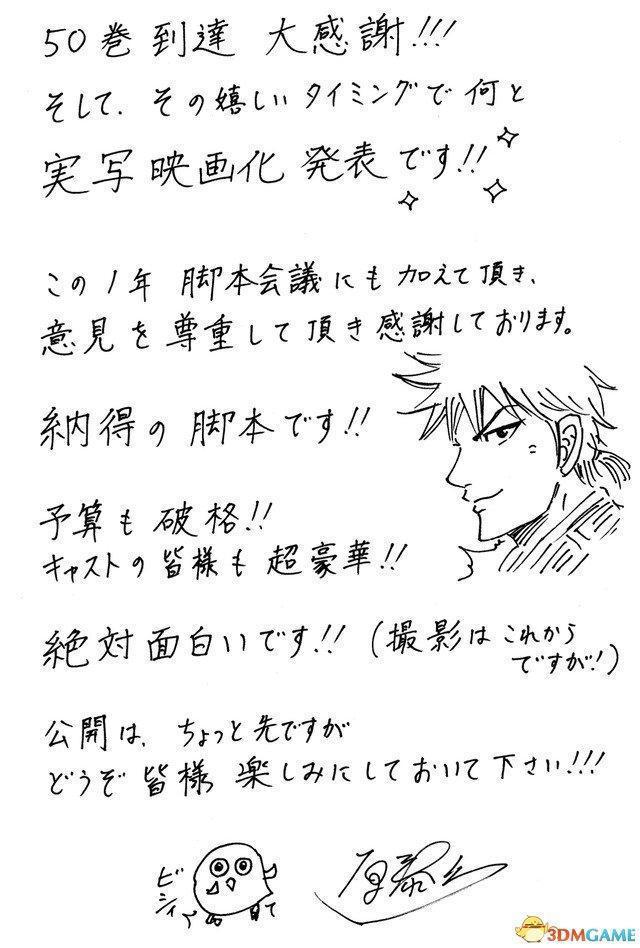 50巻 到達 大感謝!!!
そして、その嬉しいタイミングで 何と
実写映画化 発表です!!
この1年 脚本会議にも 加えて頂き、
意見を尊重して頂き感謝しております。
納得の 脚本です!!
予算も 破格!!
キャストの皆様も 超豪華!!
絶対面白いです!! (撮影は これから
ですが!)
公開は、ちょっと先ですが
どうぞ 皆様 楽しみにしておいて下さい!!!
ビシィ
原泰久
3DMGAME